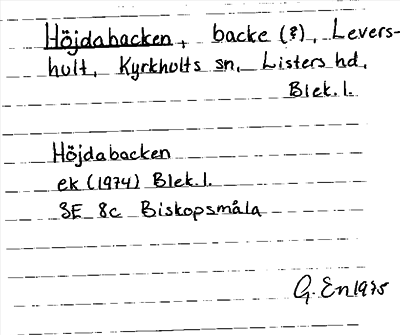 Höjdabacken, backe (?), Levers-
hult, Kyrkhults sn, Listers hd,
Blek. l.
Höjdabacken
ek (1974) Blek. l.
3E 8c Biskopsmåla
G. En 1975